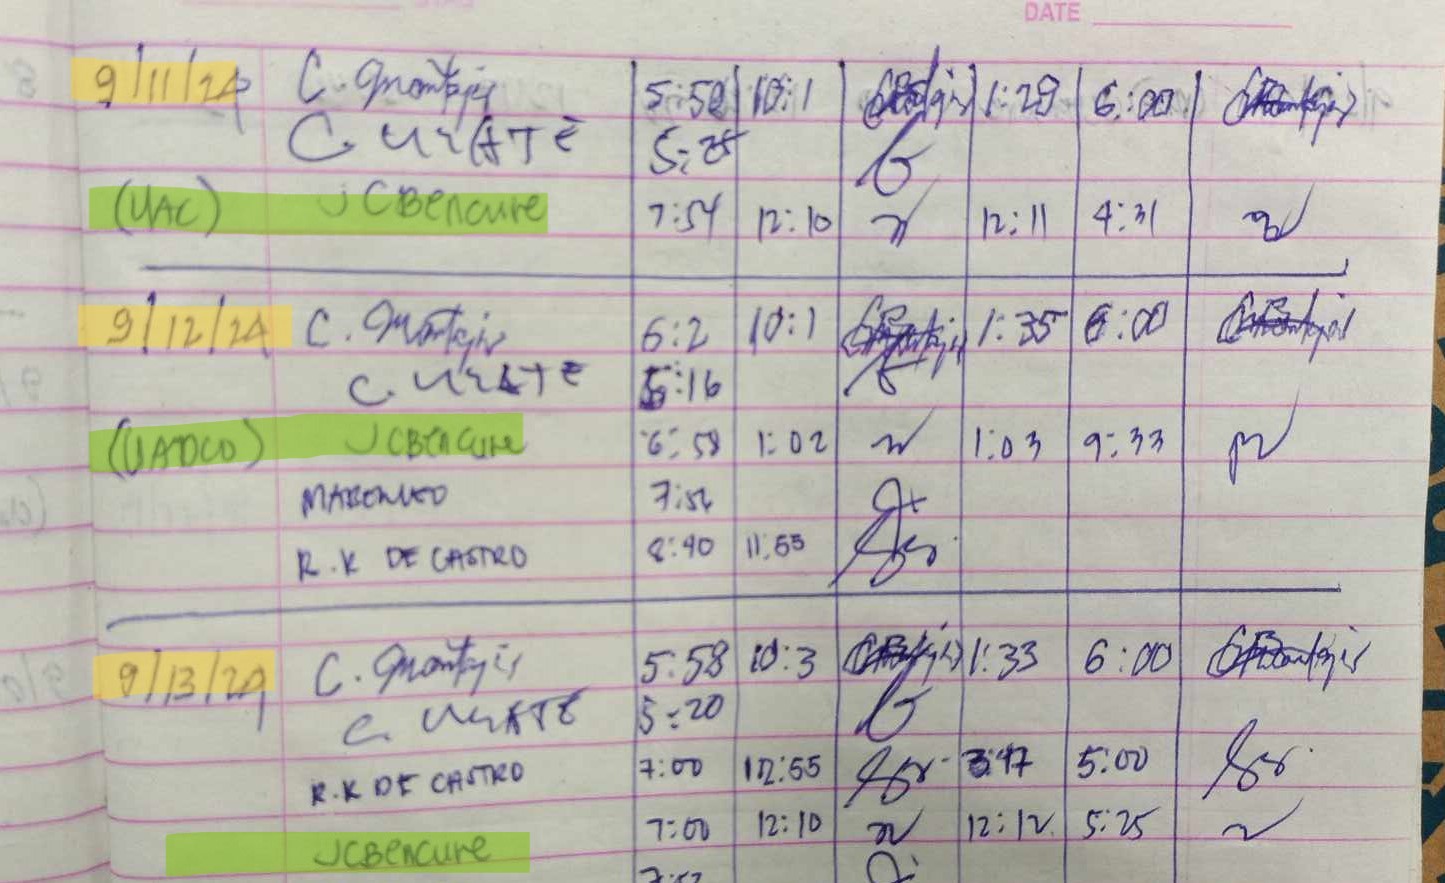 DATE
9/11/24 C. Montejis 5:58 10:1 1:29 6:00
C. URATE 5:25
(UAC) JCBencure 7:54 12:10 12:11 4:31
9/12/24 C. Montejis 6:2 10:1 1:35 6:00
C. URATE 5:16
(UADCO) JCBENCURE 6:58 1:02 1:03 9:33
7:52
R.K DE CASTRO 8:40 11:55
9/13/24 C. Montejis 5:58 10:3 1:33 6:00
C. URATE 5:20
R.K DE CASTRO 7:00 12:55 3:47 5:00
JCBENCURE 7:00 12:10 12:12 5:25